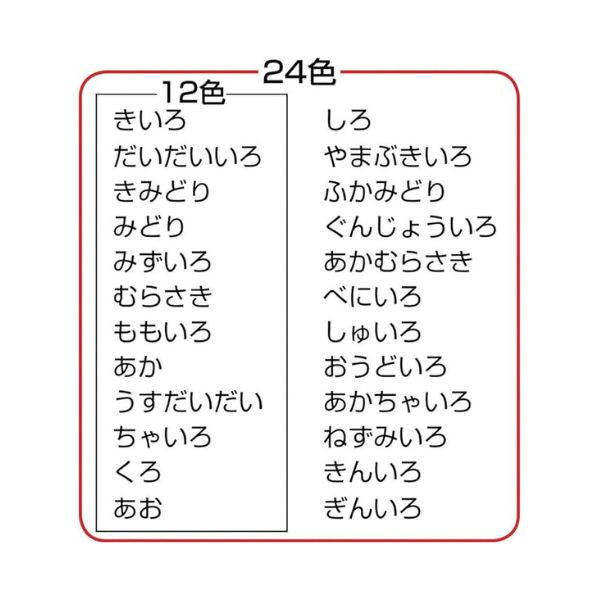 24色
12色
きいろ
だいだいいろ
きみどり
みどり
みずいろ
むらさき
ももいろ
あか
うすだいだい
ちゃいろ
くろ
あお
しろ
やまぶきいろ
ふかみどり
ぐんじょういろ
あかむらさき
べにいろ
しゅいろ
おうどいろ
あかちゃいろ
ねずみいろ
きんいろ
ぎんいろ